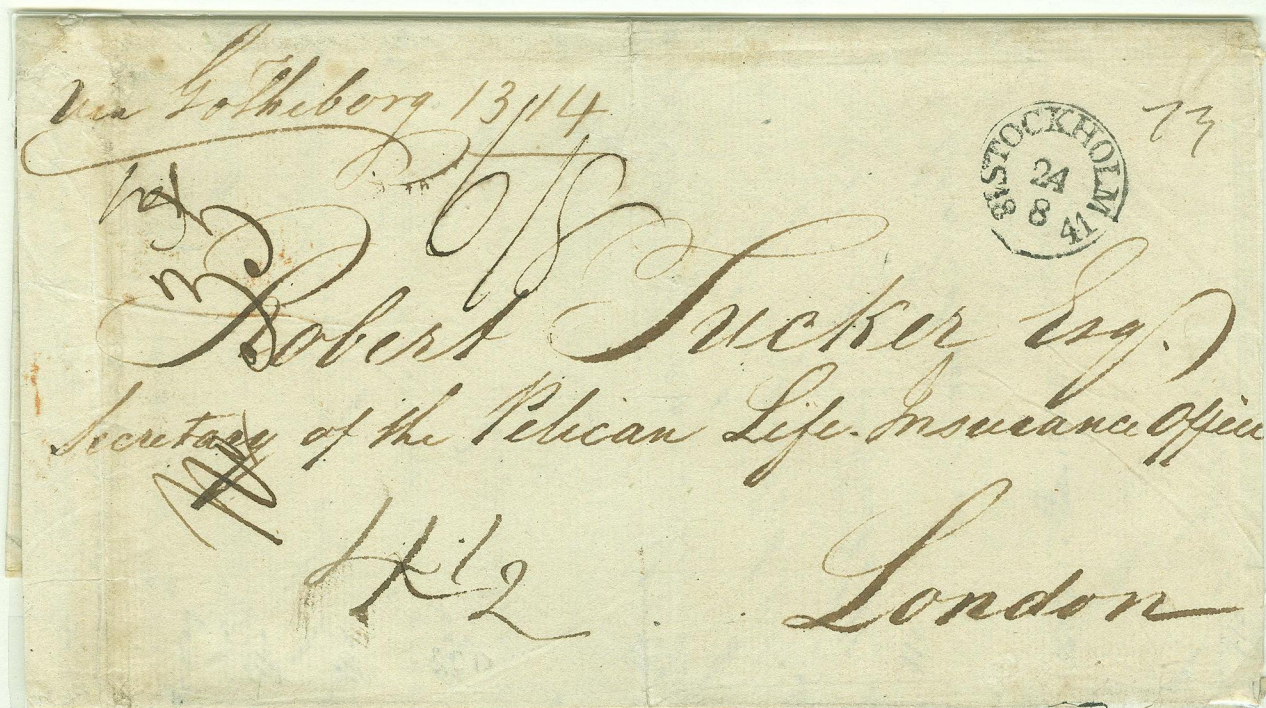 via Gotheborg 13/14
73
STOCKHOLM
24
8
41
33
6/8
Robert Tucker Esq.
Secretary of the Pelican Life. Insurance Office
4 1/2
London